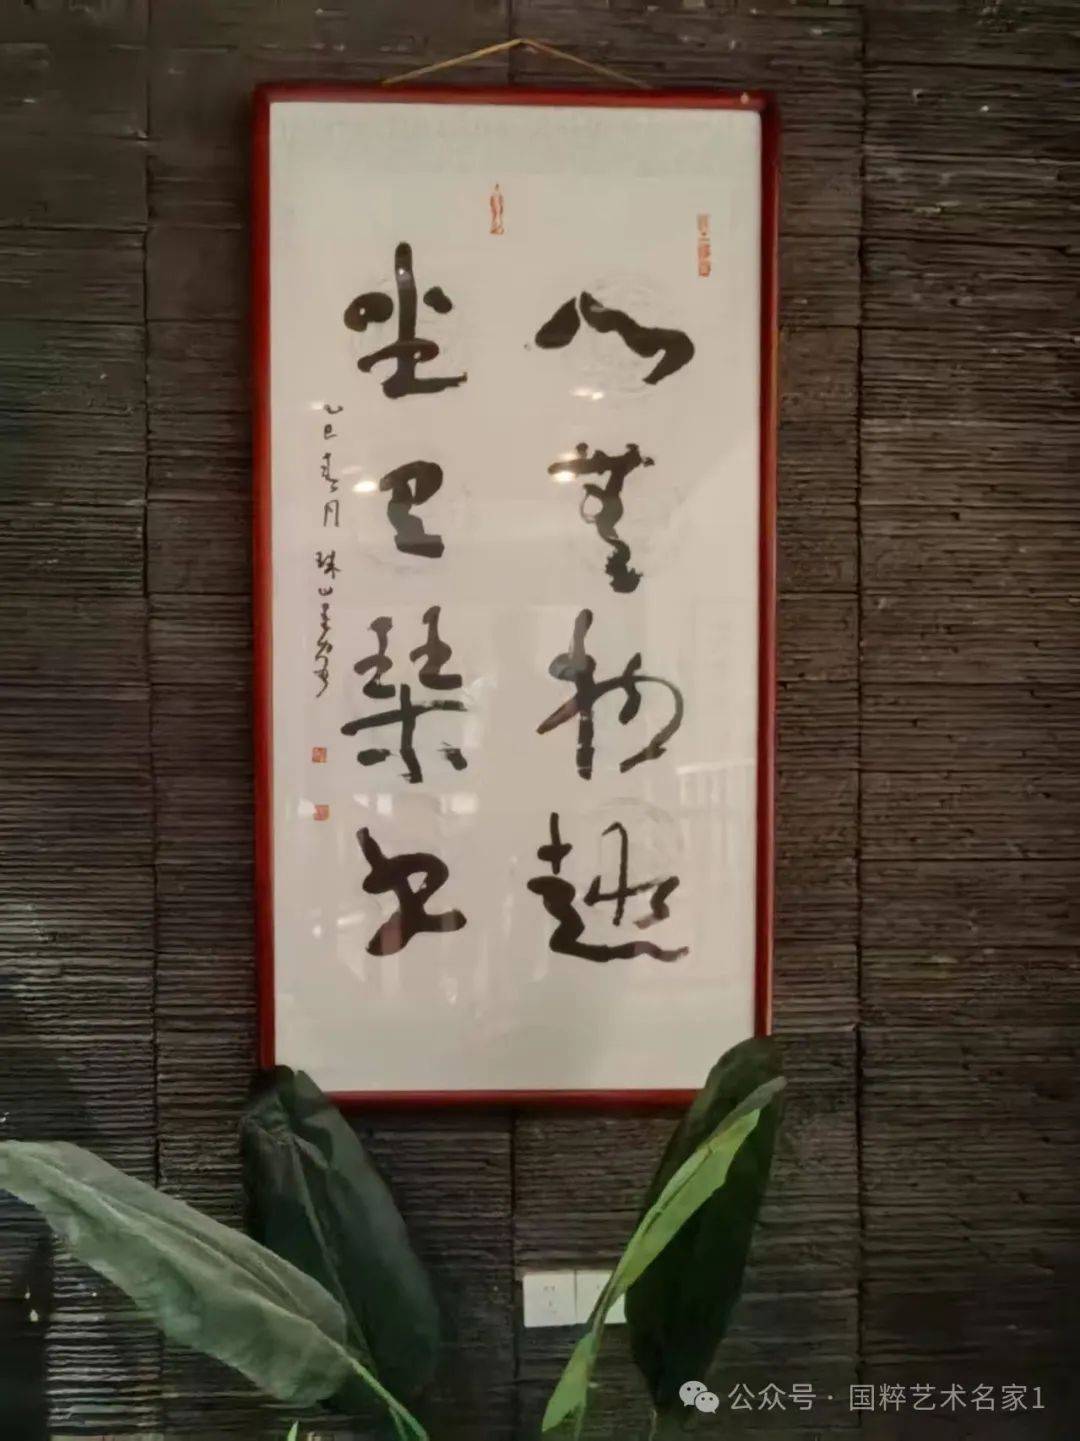 心無物趣
坐琴书
乙巳春月 珠山
公众号 · 国粹艺术名家1